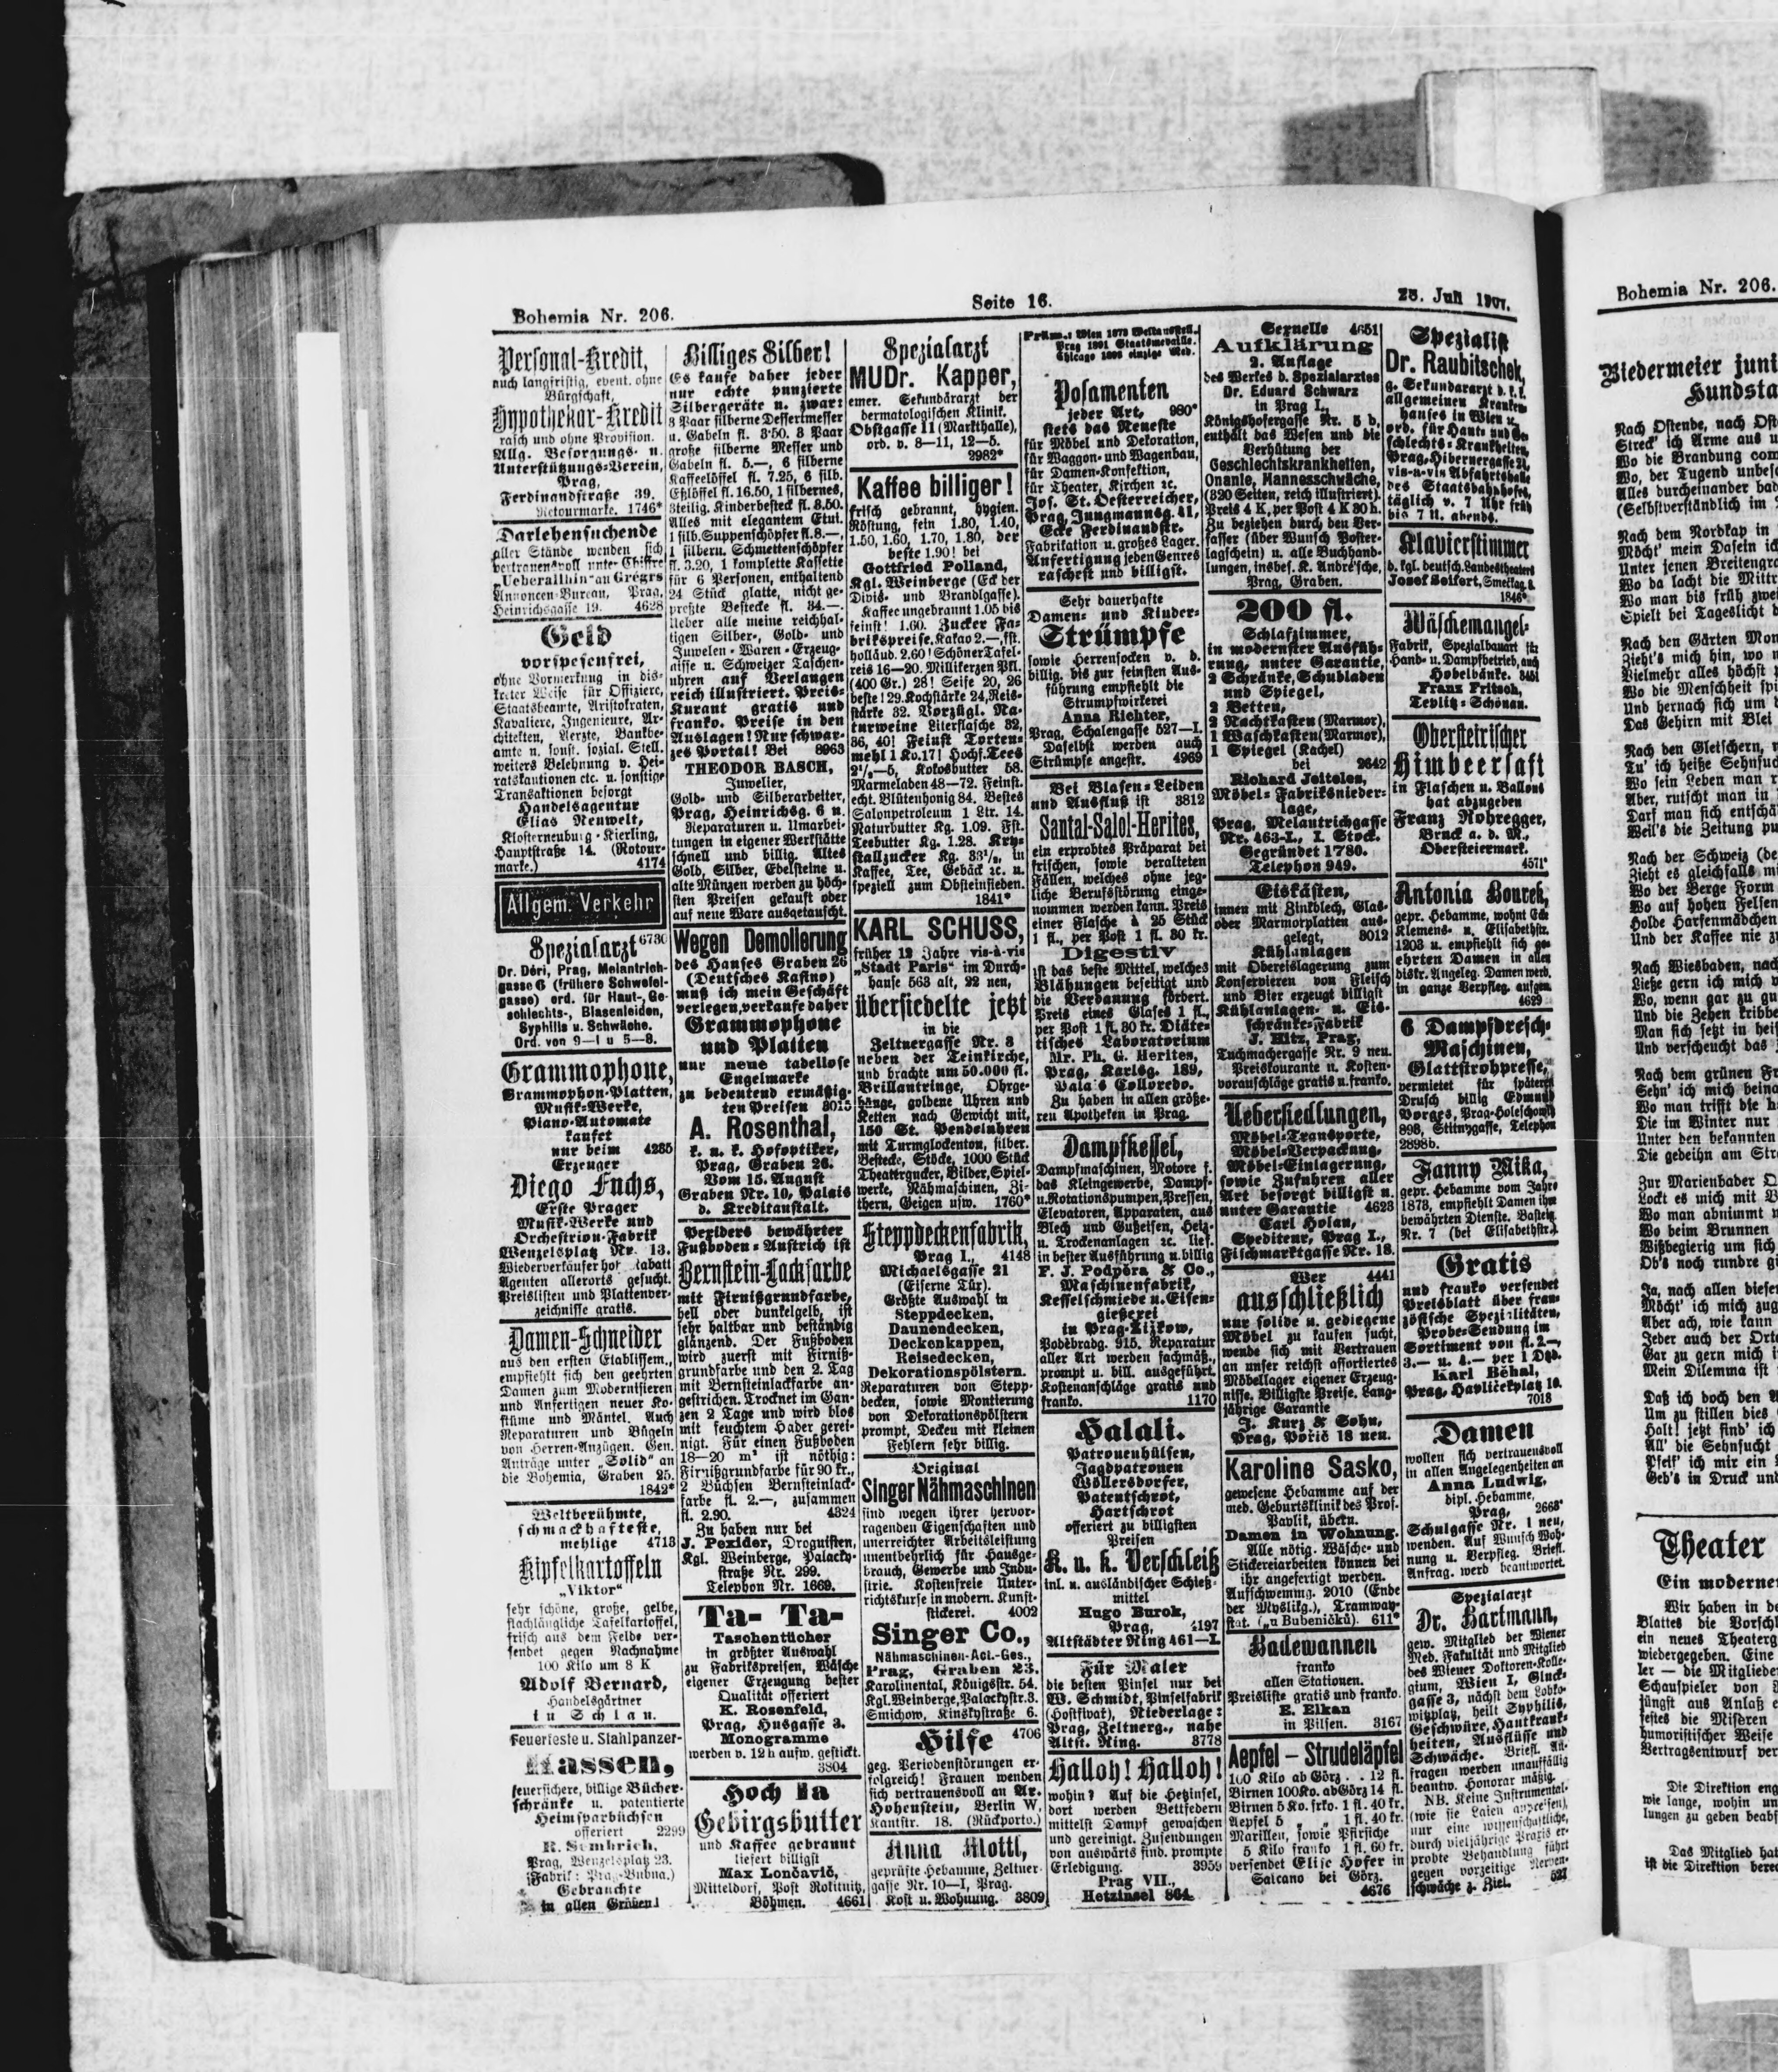 Bohemia Nr. 206.
Seite 16.
Juli
Personal-Kredit,
auch langfristig, event. ohne
Bürgschaft,
Hypothekar-Kredit
rasch und ohne Provision.
Allg. Besorgungs- u.
Unterstützungs-Verein,
Prag,
Ferdinandstraße 39.
Retourmarke. 1746*
Darlehensuchende
aller Stände wenden sich
vertrauensvoll unter Chiffre
„Ueberallhin" an Grégrs
Annoncen-Bureau, Prag,
Heinrichsgasse 19. 4628
Geld
vorspesenfrei,
ohne Vormerkung in dis-
kreter Weise für Offiziere,
Staatsbeamte, Aristokraten,
Kavaliere, Ingenieure, Ar-
chitekten, Aerzte, Bankbe-
amte u. sonst. sozial. Stell.
weiters Belehnung v. Hei-
ratskautionen etc. u. sonstige
Transaktionen besorgt
Handelsagentur
Elias Neuwelt,
Klosterneuburg-Kierling,
Hauptstraße 14. (Retour-
marke.) 4174
Allgem. Verkehr
Spezialarzt 6730
Dr. Déri, Prag, Melantrich-
gasse 6 (frühere Schwefel-
gasse) ord. für Haut-, Ge-
schlechts-, Blasenleiden,
Syphilis u. Schwäche.
Ord. von 9—1 u 5—8.
Grammophone,
Grammophon-Platten,
Musik-Werke,
Piano-Automate
kaufet
nur beim 4285
Erzeuger
Diego Fuchs,
Erste Prager
Musik-Werke und
Orchestrion-Fabrik
Wenzelsplatz Nr. 13.
Wiederverkäufer hoh. Rabatt
Agenten allerorts gesucht.
Preislisten und Plattenver-
zeichnisse gratis.
Damen-Schneider
aus den ersten Etablissem.,
empfiehlt sich den geehrten
Damen zum Modernisieren
und Anfertigen neuer Ko-
stüme und Mäntel. Auch
Reparaturen und Bügeln
von Herren-Anzügen. Gen.
Anträge unter „Solid" an
die Bohemia, Graben 25.
1842*
Weltberühmte,
schmackhafteste,
mehlige 4713
Kipfelkartoffeln
„Viktor"
sehr schöne, große, gelbe,
flachlängliche Tafelkartoffel,
frisch aus dem Felde ver-
sendet gegen Nachnahme
100 Kilo um 8 K
Adolf Bernard,
Handelsgärtner
in Schlan.
Feuerfeste u. Stahlpanzer-
Kassen,
feuersichere, billige Bücher-
schränke u. patentierte
Heimsparbüchsen
offeriert 2299
R. Sembrich,
Prag, Wenzelsplatz 23.
(Fabrik: Prag-Bubna.)
Gebrauchte
in allen Größen!
Billiges Silber!
Es kaufe daher jeder
nur echte punzierte
Silbergeräte u. zwar:
3 Paar silberne Dessertmesser
u. Gabeln fl. 3·50. 3 Paar
große silberne Messer und
Gabeln fl. 5.—, 6 silberne
Kaffeelöffel fl. 7.25, 6 silb.
Eßlöffel fl. 16.50, 1 silbernes,
3teilig. Kinderbesteck fl. 3.50.
Alles mit elegantem Etui.
1 silb. Suppenschöpfer fl. 8.—,
1 silbern. Schmettenschöpfer
fl. 3.20, 1 komplette Kassette
für 6 Personen, enthaltend
24 Stück glatte, nicht ge-
preßte Bestecke fl. 34.—.
Ueber alle meine reichhal-
tigen Silber-, Gold- und
Juwelen-Waren-Erzeug-
nisse u. Schweizer Taschen-
uhren auf Verlangen
reich illustriert. Preis-
Kurant gratis und
franko. Preise in den
Auslagen! Nur schwar-
zes Portal! Bei 8963
THEODOR BASCH,
Juwelier,
Gold- und Silberarbeiter,
Prag, Heinrichsg. 6 n.
Reparaturen u. Umarbei-
tungen in eigener Werkstätte
schnell und billig. Altes
Gold, Silber, Edelsteine u.
alte Münzen werden zu höch-
sten Preisen gekauft oder
auf neue Ware ausgetauscht.
Wegen Demolierung
des Hauses Graben 26
(Deutsches Kasino)
muß ich mein Geschäft
verlegen, verkaufe daher
Grammophone
und Platten
nur neue tadellose
Engelmarke
zu bedeutend ermäßig-
ten Preisen 3015
A. Rosenthal,
k. u. k. Hofoptiker,
Prag, Graben 26.
Vom 15. August
Graben Nr. 10, Palais
d. Kreditanstalt.
Pexiders bewährter
Fußboden-Anstrich ist
Bernstein-Lackfarbe
mit Firnißgrundfarbe,
hell oder dunkelgelb, ist
sehr haltbar und beständig
glänzend. Der Fußboden
wird zuerst mit Firniß-
grundfarbe und den 2. Tag
mit Bernsteinlackfarbe an-
gestrichen. Trocknet im Gan-
zen 2 Tage und wird blos
mit feuchtem Hader gerei-
nigt. Für einen Fußboden
18—20 m² ist nöthig:
Firnißgrundfarbe für 90 kr.,
2 Büchsen Bernsteinlack-
farbe fl. 2.—, zusammen
fl. 2.90. 4324
Zu haben nur bei
J. Pexider, Droguisten,
Kgl. Weinberge, Palacky-
straße Nr. 299.
Telephon Nr. 1669.
Ta- Ta-
Taschentücher
in größter Auswahl
zu Fabrikspreisen, Wäsche
eigener Erzeugung bester
Qualität offeriert
K. Rosenfeld,
Prag, Husgasse 3.
Monogramme
werden v. 12 h aufw. gestickt.
3804
Hoch Ia
Gebirgsbutter
und Kaffee gebrannt
liefert billigst
Max Lončavič,
Mitteldorf, Post Rokitnitz,
Böhmen. 4661
Spezialarzt
MUDr. Kapper,
emer. Sekundärarzt der
dermatologischen Klinik.
Obstgasse 11 (Markthalle),
ord. v. 8—11, 12—5.
2982*
Kaffee billiger!
frisch gebrannt, hygien.
Röstung, fein 1.30, 1.40,
1.50, 1.60, 1.70, 1.80, der
beste 1.90! bei
Gottfried Polland,
Kgl. Weinberge (Eck der
Divis- und Brandlgasse).
Kaffee ungebrannt 1.05 bis
feinst! 1.60. Zucker Fa-
brikspreise, Kakao 2.—, fst.
holländ. 2.60! Schöner Tafel-
reis 16—20. Millikerzen Pfl.
(400 Gr.) 28! Seife 20, 26
beste! 29. Kochstärke 24, Reis-
stärke 32. Vorzügl. Na-
turweine Literflasche 32,
36, 40! Feinst Torten-
mehl 1 Ko. 17! Hochf. Tees
2½—5, Kokosbutter 58.
Marmeladen 48—72. Feinst.
echt. Blütenhonig 84. Bestes
Salonpetroleum 1 Ltr. 14.
Naturbutter Kg. 1.09. Fst.
Teebutter Kg. 1.28. Kry-
stallzucker Kg. 33½, in
Kaffee, Tee, Gebäck ꝛc. u.
speziell zum Obsteinsieden.
1841*
KARL SCHUSS,
früher 12 Jahre vis-à-vis
„Stadt Paris" im Durch-
hause 563 alt, 22 neu,
übersiedelte jetzt
in die
Zeltnergasse Nr. 3
neben der Teinkirche,
und brachte um 50.000 fl.
Brillantringe, Ohrge-
hänge, goldene Uhren und
Ketten nach Gewicht mit,
150 St. Pendeluhren
mit Turmglockenton, silber.
Bestecke, Stöcke, 1000 Stück
Theatergucker, Bilder, Spiel-
werke, Nähmaschinen, Zi-
thern, Geigen usw. 1760*
Steppdeckenfabrik,
Prag I., 4148
Michaelsgasse 21
(Eiserne Tür).
Größte Auswahl in
Steppdecken,
Daunendecken,
Deckenkappen,
Reisedecken,
Dekorationspölstern.
Reparaturen von Stepp-
decken, sowie Montierung
von Dekorationspölstern
prompt, Decken mit kleinen
Fehlern sehr billig.
Original
Singer Nähmaschinen
sind wegen ihrer hervor-
ragenden Eigenschaften und
unerreichter Arbeitsleistung
unentbehrlich für Hausge-
brauch, Gewerbe und Indu-
strie. Kostenfreie Unter-
richtskurse in modern. Kunst-
stickerei. 4002
Singer Co.,
Nähmaschinen-Act.-Ges.,
Prag, Graben 23.
Karolinental, Königsstr. 54.
Kgl. Weinberge, Palackystr. 3.
Smichow, Kinskystraße 6.
Hilfe 4706
geg. Periodenstörungen er-
folgreich! Frauen wenden
sich vertrauensvoll an Ar.
Hohenstein, Berlin W,
Kantstr. 18. (Rückporto.)
Anna Mottl,
geprüfte Hebamme, Zeltner-
gasse Nr. 10—I, Prag.
Kost u. Wohnung. 3809
Präm.: Wien 1873 Weltausstell.
Prag 1891 Staatsmedaille.
Chicago 1893 einzige Med.
Posamenten
jeder Art, 980*
stets das Neueste
für Möbel und Dekoration,
für Waggon- und Wagenbau,
für Damen-Konfektion,
für Theater, Kirchen ꝛc.
Jos. St. Oesterreicher,
Prag, Jungmannsg. 41,
Ecke Ferdinandstr.
Fabrikation u. großes Lager.
Anfertigung jeden Genres
raschest und billigst.
Sehr dauerhafte
Damen- und Kinder-
Strümpfe
sowie Herrensocken v. d.
billig. bis zur feinsten Aus-
führung empfiehlt die
Strumpfwirkerei
Anna Richter,
Prag, Schalengasse 527—I.
Daselbst werden auch
Strümpfe angestr. 4969
Bei Blasen-Leiden
und Ausfluß ist 3812
Santal-Salol-Herites,
ein erprobtes Präparat bei
frischen, sowie veralteten
Fällen, welches ohne jeg-
liche Berufsstörung einge-
nommen werden kann. Preis
einer Flasche à 25 Stück
1 fl., per Post 1 fl. 30 kr.
Digestiv
ist das beste Mittel, welches
Blähungen beseitigt und
die Verdauung fördert.
Preis eines Glases 1 fl.,
per Post 1 fl. 30 kr. Diäte-
tisches Laboratorium
Mr. Ph. G. Herites,
Prag, Karlsg. 189,
Pala's Colloredo.
Zu haben in allen größe-
ren Apotheken in Prag.
Dampfkessel,
Dampfmaschinen, Motore f.
das Kleingewerbe, Dampf-
u. Rotationspumpen, Pressen,
Elevatoren, Apparaten, aus
Blech und Gußeisen, Heiz-
u. Trockenanlagen ꝛc. lief.
in bester Ausführung u. billig
F. J. Podpěra & Co.,
Maschinenfabrik,
Kesselschmiede u. Eisen-
gießerei
in Prag-Žižkow,
Poděbradg. 915. Reparatur
aller Art werden fachmäß.,
prompt u. bill. ausgeführt.
Kostenanschläge gratis und
franko. 1170
Halali.
Patronenhülsen,
Jagdpatronen
Wöllersdorfer,
Patentschrot,
Hartschrot
offeriert zu billigsten
Preisen
K. u. k. Verschleiß
inl. u. ausländischer Schieß-
mittel
Hugo Burok,
Prag, 4197
Altstädter Ring 461—I.
Für Maler
die besten Pinsel nur bei
W. Schmidt, Pinselfabrik
(Hostiwař), Niederlage:
Prag, Zeltnerg., nahe
Altst. Ring. 3778
Halloh! Halloh!
wohin? Auf die Hetzinsel,
dort werden Bettfedern
mittelst Dampf gewaschen
und gereinigt. Zusendungen
von auswärts find. prompte
Erledigung. 3959
Prag VII.,
Hetzinsel 864.
Sexuelle 4651
Aufklärung
2. Auflage
des Werkes d. Spezialarztes
Dr. Eduard Schwarz
in Prag I.,
Königshofergasse Nr. 5 b,
enthält das Wesen und die
Verhütung der
Geschlechtskrankheiten,
Onanie, Mannesschwäche,
(320 Seiten, reich illustriert).
Preis 4 K, per Post 4 K 30 h.
Zu beziehen durch den Ver-
fasser (über Wunsch Poster-
lagschein) u. alle Buchhand-
lungen, insbes. K. André'sche,
Prag, Graben.
200 fl.
Schlafzimmer,
in modernster Ausfüh-
rung, unter Garantie,
2 Schränke, Schubladen
und Spiegel,
2 Betten,
2 Nachtkasten (Marmor),
1 Waschkasten (Marmor),
1 Spiegel (Kachel)
bei 2642
Richard Jeiteles,
Möbel-Fabriksnieder-
lage,
Prag, Melantrichgasse
Nr. 463-I., I. Stock.
Gegründet 1780.
Telephon 949.
Eiskästen,
innen mit Zinkblech, Glas-
oder Marmorplatten aus-
gelegt, 3012
Kühlanlagen
mit Obereislagerung zum
Konservieren von Fleisch
und Bier erzeugt billigst
Kühlanlagen- u. Eis-
schränke-Fabrik
J. Hitz, Prag,
Tuchmachergasse Nr. 9 neu.
Preiskourante u. Kosten-
voranschläge gratis u. franko.
Uebersiedlungen,
Möbel-Transporte,
Möbel-Verpackung,
Möbel-Einlagerung,
sowie Zufuhren aller
Art besorgt billigst u.
unter Garantie 4623
Carl Holan,
Spediteur, Prag I.,
Fischmarktgasse Nr. 18.
Wer 4441
ausschließlich
nur solide u. gediegene
Möbel zu kaufen sucht,
wende sich mit Vertrauen
an unser reichst assortiertes
Möbellager eigener Erzeug-
nisse. Billigste Preise. Lang-
jährige Garantie
J. Kurz & Sohn,
Prag, Pořič 18 neu.
Karoline Sasko,
gewesene Hebamme auf der
med. Geburtsklinik des Prof.
Pavlik, übern.
Damen in Wohnung.
Alle nötig. Wäsche- und
Stickereiarbeiten können bei
ihr angefertigt werden.
Aufschwemmg. 2010 (Ende
der Myslikg.), Tramway-
stat. („u Bubeničků). 611*
Badewannen
franko
allen Stationen.
Preisliste gratis und franko.
E. Elkan
in Pilsen. 3167
Aepfel — Strudeläpfel
100 Kilo ab Görz . . 12 fl.
Birnen 100 Ko. ab Görz 14 fl.
Birnen 5 Ko. frko. 1 fl. 40 kr.
Aepfel 5 „ „ 1 fl. 40 kr.
Marillen, sowie Pfirsiche
5 Kilo franko 1 fl. 60 kr.
versendet Elise Hofer in
Salcano bei Görz.
4676
Spezialist
Dr. Raubitschek,
g. Sekundararzt d. k. k.
allgemeinen Kranken-
hauses in Wien u.
ord. für Haut- und Ge-
schlechts-Krankheiten,
Prag, Hibernergasse 24,
vis-à-vis Abfahrtshalle
des Staatsbahnhofes,
täglich v. 7 Uhr früh
bis 7 U. abends.
Klavierstimmer
d. kgl. deutsch. Landestheaters
Josef Seifert, Smetlag.
1846*
Wäschemangel-
Fabrik, Spezialbauart für
Hand- u. Dampfbetrieb, auch
Hobelbänke. 3451
Franz Fritsch,
Teplitz-Schönau.
Obersteirischer
Himbeersaft
in Flaschen u. Ballons
hat abzugeben
Franz Rohregger,
Bruck a. d. M.,
Obersteiermark.
4571*
Antonia Bourek,
gepr. Hebamme, wohnt Ecke
Klemens- u. Elisabethstr.
1203 u. empfiehlt sich ge-
ehrten Damen in allen
diskr. Angeleg. Damen werd.
in ganze Verpfleg. aufgen.
4629
6 Dampfdresch-
Maschinen,
Glattstrohpresse,
vermietet für späteren
Drusch billig Edmund
Borges, Prag-Holeschowitz
898, Stitnygasse, Telephon
2898b.
Fanny Mika,
gepr. Hebamme vom Jahre
1873, empfiehlt Damen ihre
bewährten Dienste. Basteig.
Nr. 7 (bei Elisabethstr.).
Gratis
und franko versendet
Preisblatt über fran-
zösische Spezialitäten,
Probe-Sendung im
Sortiment von fl. 2.—,
3.— u. 4.— per 1 Dtzd.
Karl Běhal,
Prag, Havličekplatz 10.
7018
Damen
wollen sich vertrauensvoll
in allen Angelegenheiten an
Anna Ludwig,
dipl. Hebamme,
Prag, 2668*
Schulgasse Nr. 1 neu,
wenden. Auf Wunsch Woh-
nung u. Verpfleg. Briefl.
Anfrag. werd beantwortet.
Spezialarzt
Dr. Hartmann,
gew. Mitglied der Wiener
Med. Fakultät und Mitglied
des Wiener Doktoren-Kolle-
gium, Wien I, Gluck-
gasse 3, nächst dem Lobko-
witzplatz, heilt Syphilis,
Geschwüre, Hautkrank-
heiten, Ausflüsse und
Schwäche. Briefl. An-
fragen werden unauffällig
beantw. Honorar mäßig.
NB. Keine Instrumental-
(wie sie Laien anpreisen),
nur eine wissenschaftliche,
durch vieljährige Praxis er-
probte Behandlung führt
gegen vorzeitige Nerven-
schwäche z. Ziel. 527
Bohemia Nr. 206.
Biedermeier juni
Hundsta
Nach Ostende, nach Ost
Streck' ich Arme aus u
Wo die Brandung com
Wo, der Tugend unbesc
Alles durcheinander bad
(Selbstverständlich im
Nach dem Nordkap in
Möcht' mein Dasein ich
Unter jenen Breitengra
Wo da lacht die Mittr
Wo man bis früh zwei
Spielt bei Tageslicht b
Nach den Gärten Mon
Zieht's mich hin, wo n
Vielmehr alles höchst p
Wo die Menschheit spi
Und hernach sich um d
Das Gehirn mit Blei
Nach den Gletschern, n
Tu' ich heiße Sehnsuc
Wo sein Leben man r
Aber, rutscht man in
Darf man sich entschä
Weil's die Zeitung pu
Nach der Schweiz (de
Zieht es gleichfalls mi
Wo der Berge Form
Wo auf hohen Felsen
Holde Harfenmädchen
Und der Kaffee nie z
Nach Wiesbaden, nach
Ließe gern ich mich v
Wo, wenn gar zu gu
Und die Zehen kribbe
Man sich setzt in heis
Und verscheucht das
Nach dem grünen Fr
Sehn' ich mich beina
Wo man trifft die h
Die im Winter nur
Unter den bekannten
Die gedeihn am Stra
Zur Marienbader Q
Lockt es mich mit V
Wo man abnimmt u
Wo beim Brunnen
Wißbegierig um sich
Ob's noch rundre gi
Ja, nach allen diesen
Möcht' ich mich zug
Aber ach, wie kann
Jeder auch der Orte
Gar zu gern mich i
Mein Dilemma ist
Daß ich doch den A
Um zu stillen dies
Halt! jetzt find' ich
All' die Sehnsucht
Pfeif' ich mir ein
Geb's in Druck und
Theater
Ein moderner
Wir haben in de
Blattes die Vorschl
ein neues Theaterg
wiedergegeben. Eine
ler — die Mitgliede
Schauspieler von
jüngst aus Anlaß e
festes die Misèren
humoristischer Weise
Vertragsentwurf ver
Die Direktion eng
wie lange, wohin un
lungen zu geben beabs
Das Mitglied hat
ist die Direktion berec